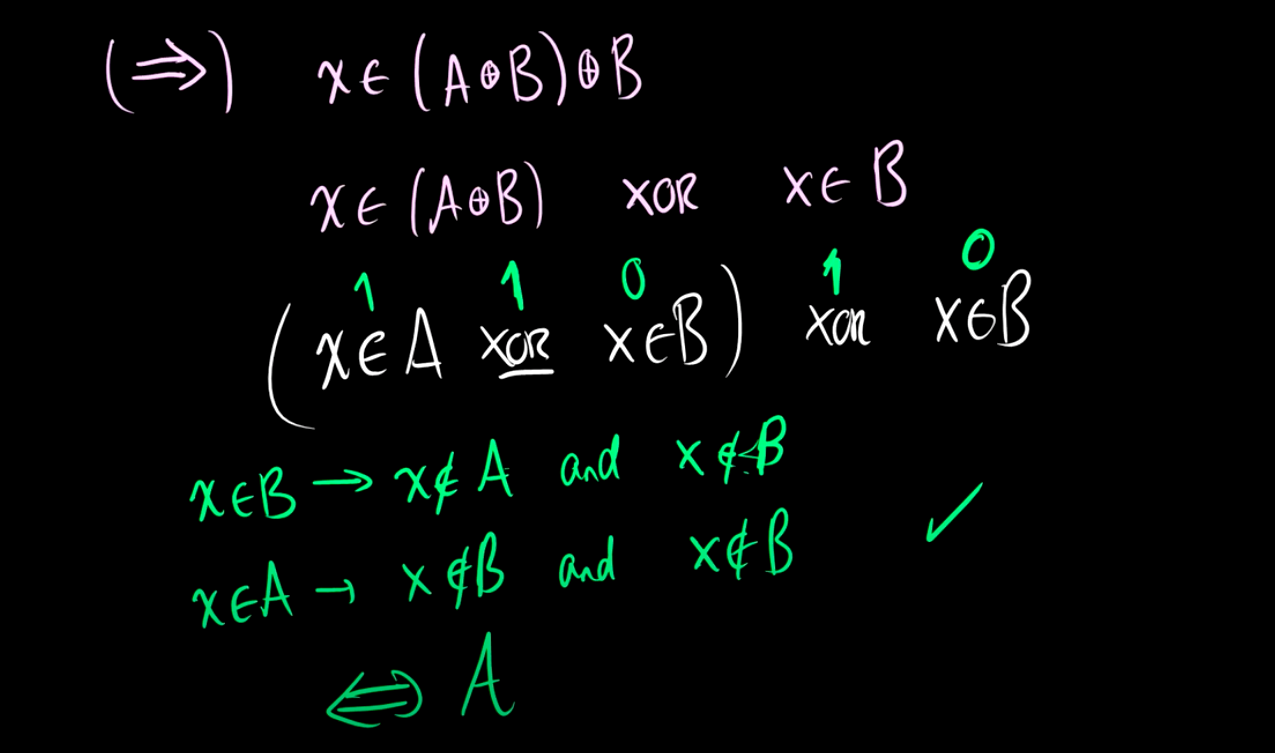 (⇒) x∈(A⊕B)⊕B
x∈(A⊕B) XOR x∈B
1 1 0 1 0
(x∈A XOR x∈B) XOR x∈B
x∈B → x∉A and x∉B
x∈A → x∉B and x∉B ✓
⇔ A